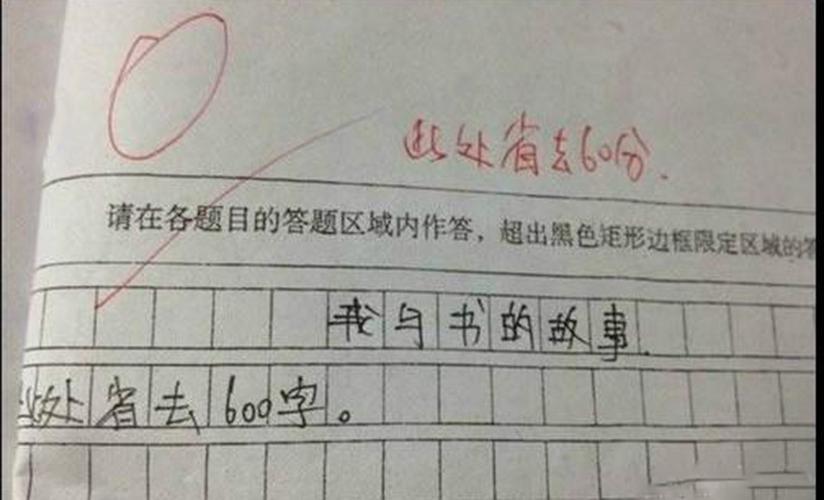 0
此处省去60分.
请在各题目的答题区域内作答，超出黑色矩形边框限定区域的答
我与书的故事.
此处省去600字。